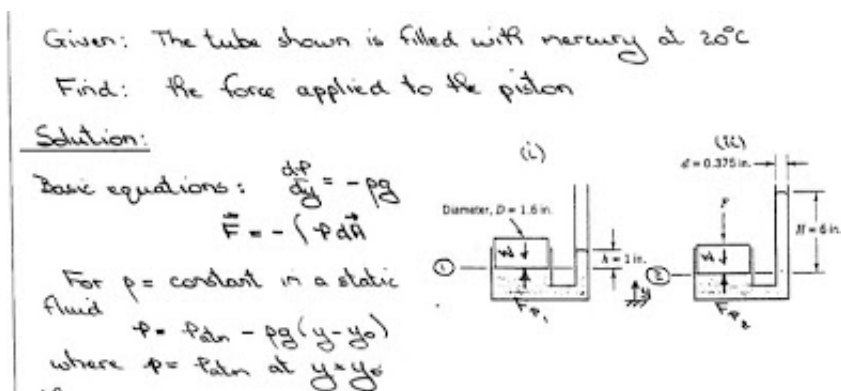 Given: The tube shown is filled with mercury at 20°C
Find: the force applied to the piston
Solution:
Basic equations: dp/dy = -ρg
F⃗ = -∫ p dA⃗
For ρ = constant in a static
fluid
p = patm - ρg(y-y₀)
where p = patm at y = y₀
(i)
Diameter, D = 1.6 in.
W
h = 1 in.
①
FP₁
y
(ii)
d = 0.375 in.
F
H = 6 in.
W
②
FP₂